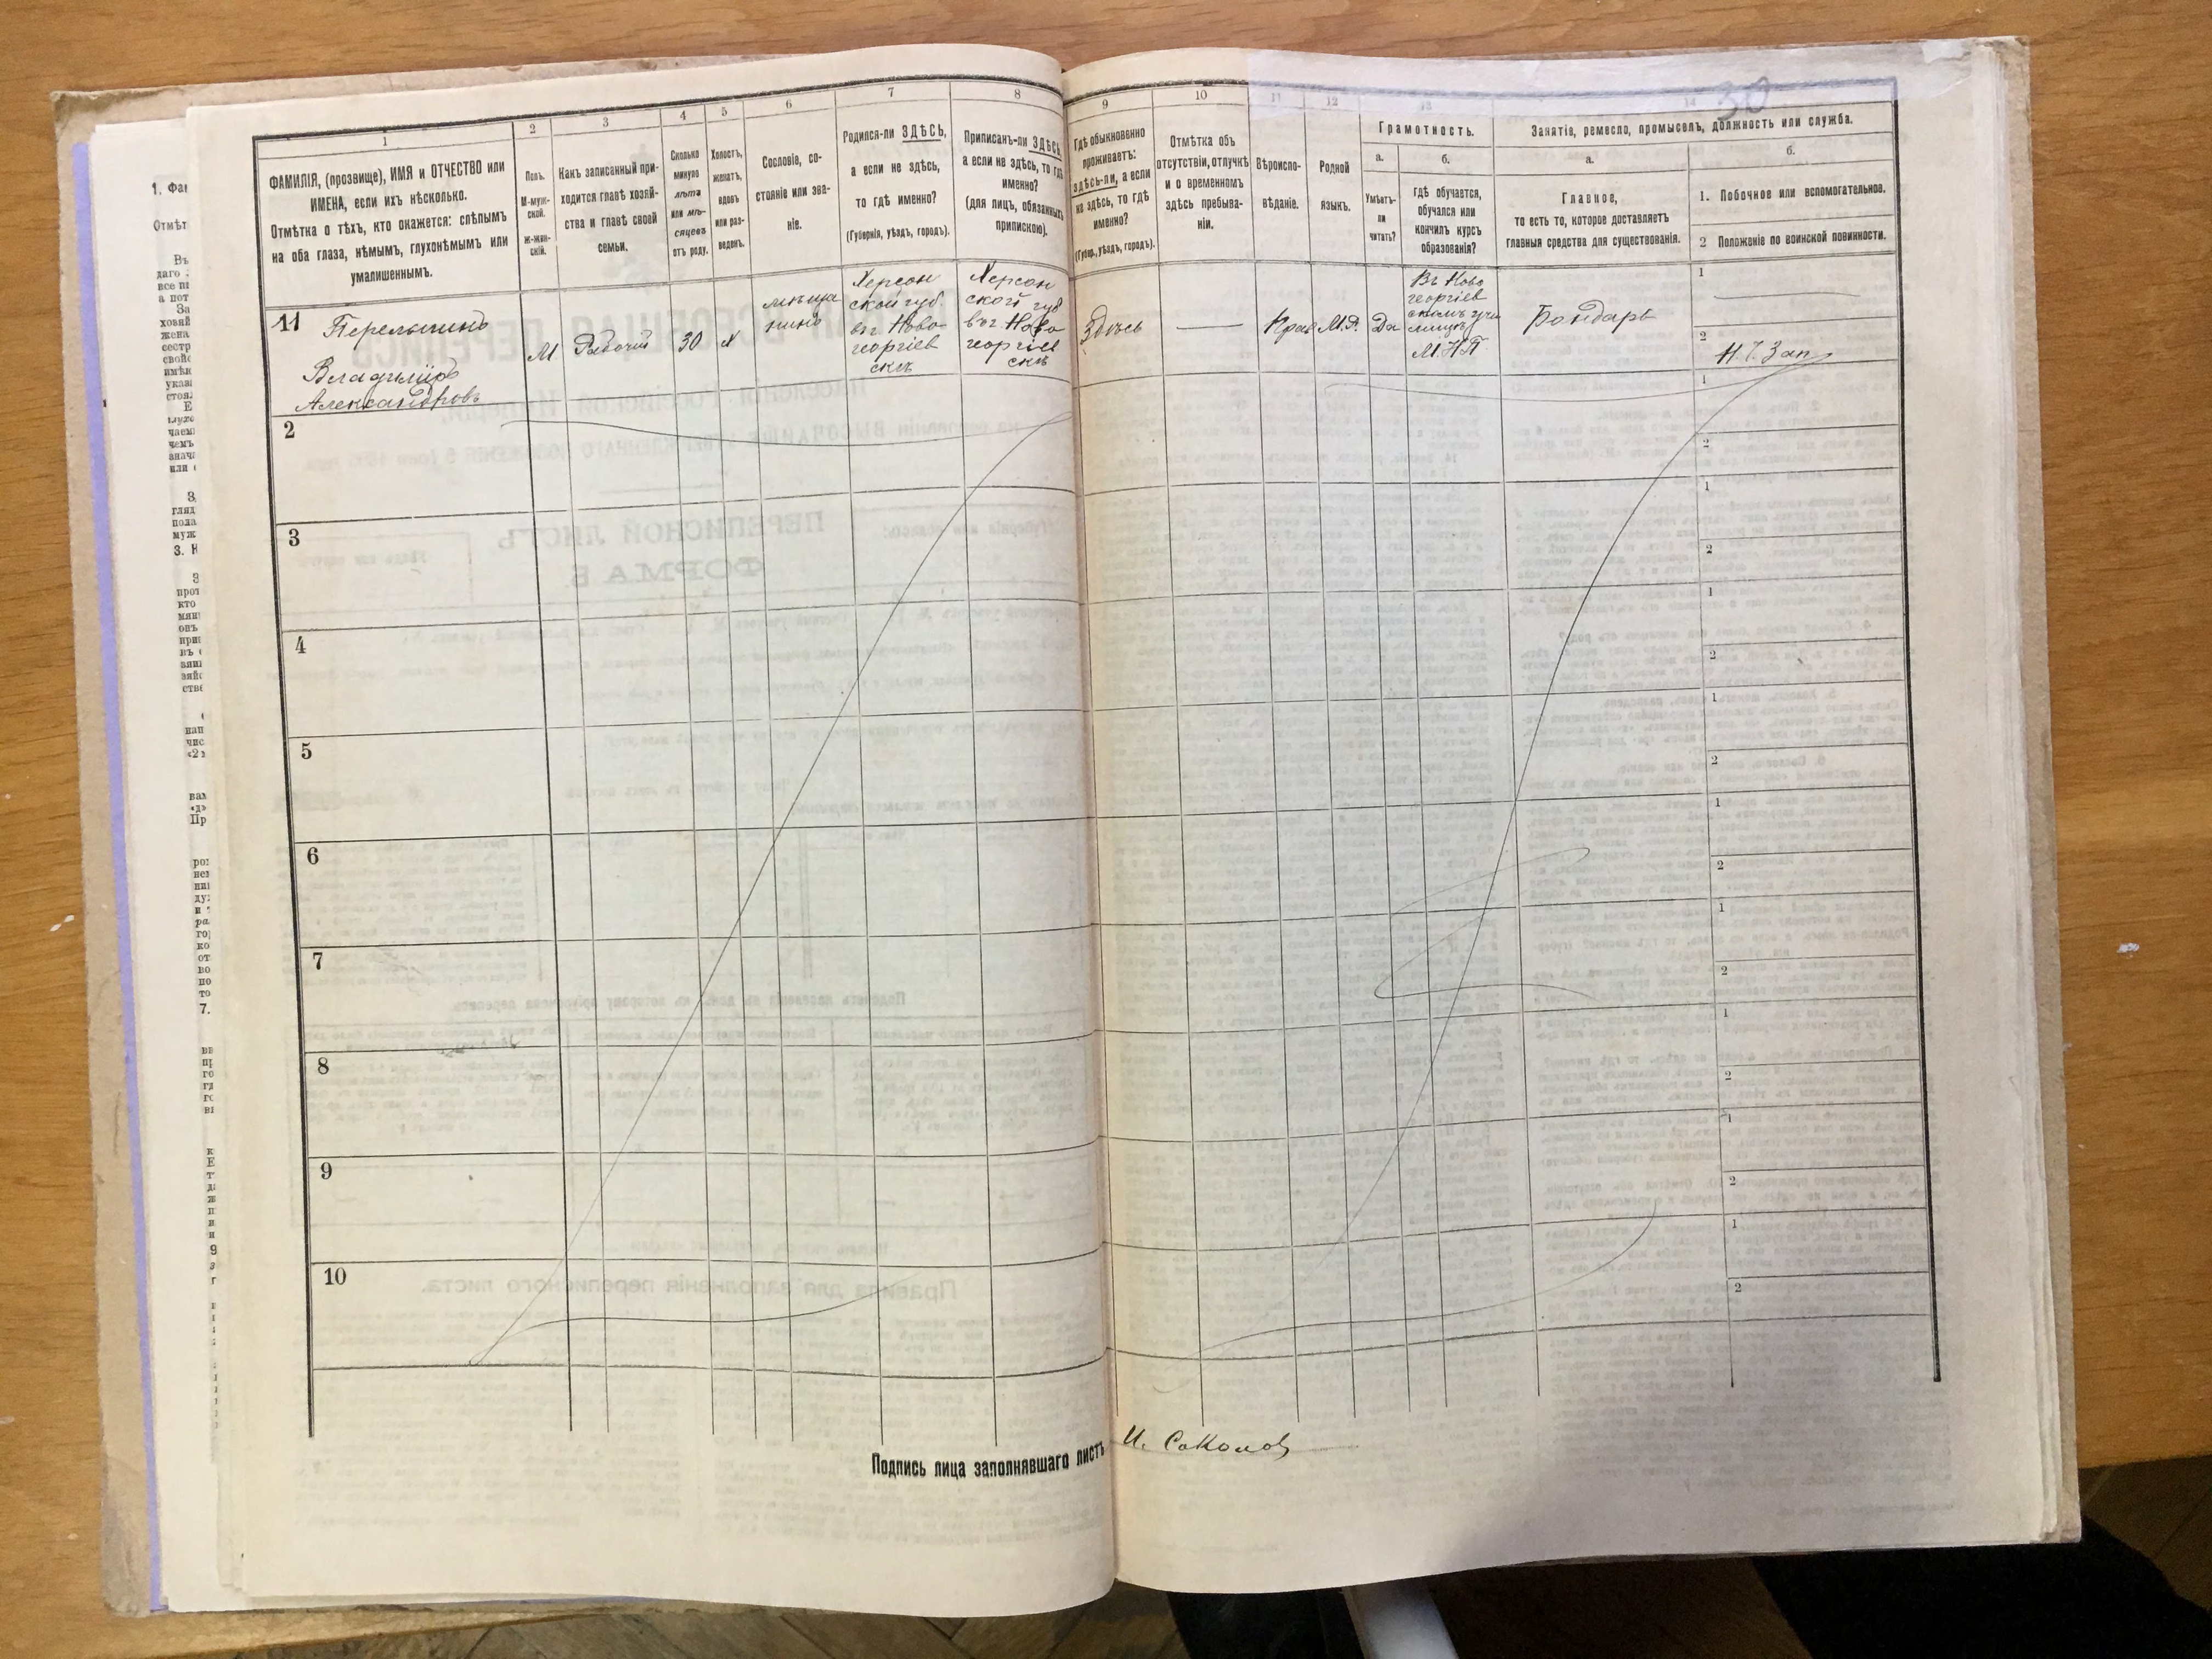 30
1
ФАМИЛІЯ, (прозвище), ИМЯ и ОТЧЕСТВО или
ИМЕНА, если ихъ нѣсколько.
Отмѣтка о тѣхъ, кто окажется: слѣпымъ
на оба глаза, нѣмымъ, глухонѣмымъ или
умалишеннымъ.
2
Полъ.
М-муж-
ской.
ж-жен-
скій.
3
Какъ записанный при-
ходится главѣ хозяй-
ства и главѣ своей
семьи.
4
Сколько
минуло
лѣтъ
или мѣ-
сяцевъ
отъ роду.
5
Холостъ,
женатъ,
вдовъ
или раз-
веденъ.
6
Сословіе, со-
стояніе или зва-
ніе.
7
Родился-ли ЗДѢСЬ,
а если не здѣсь,
то гдѣ именно?
(Губернія, уѣздъ, городъ).
8
Приписанъ-ли ЗДѢСЬ,
а если не здѣсь, то гдѣ
именно?
(для лицъ, обязанныхъ
припискою).
9
Гдѣ обыкновенно
проживаетъ:
здѣсь-ли, а если
не здѣсь, то гдѣ
именно?
(Губер., уѣздъ, городъ).
10
Отмѣтка объ
отсутствіи, отлучкѣ
и о временномъ
здѣсь пребыва-
ніи.
11
Вѣроиспо-
вѣданіе.
12
Родной
языкъ.
13
Грамотность.
а.
Умѣетъ-
ли
читать?
б.
гдѣ обучается,
обучался или
кончилъ курсъ
образованія?
14
Занятіе, ремесло, промыселъ, должность или служба.
а.
Главное,
то есть то, которое доставляетъ
главныя средства для существованія.
б.
1. Побочное или вспомогательное.
2 Положеніе по воинской повинности.
11
Владиміръ
Александровъ
М
Рабочій
30
Х
мѣща
нинъ
Херсон
ской губ.
въ г. Ново-
георгіев
скѣ
Херсон
ской губ
въ г. Ново-
георгіев
скѣ
Здѣсь
Прав
М.Р.
Да
Въ Ново
георгіев
скомъ учи
лищѣ
М.Н.П.
Бондарь
1
2
Н.Ч. Зап.
2
1
2
3
1
2
4
1
2
5
1
2
6
1
2
7
1
2
8
1
2
9
1
2
10
1
2
Подпись лица заполнявшаго листъ
И. Соколов